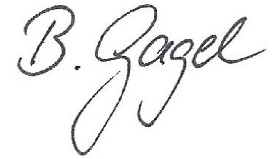 B. Gagel